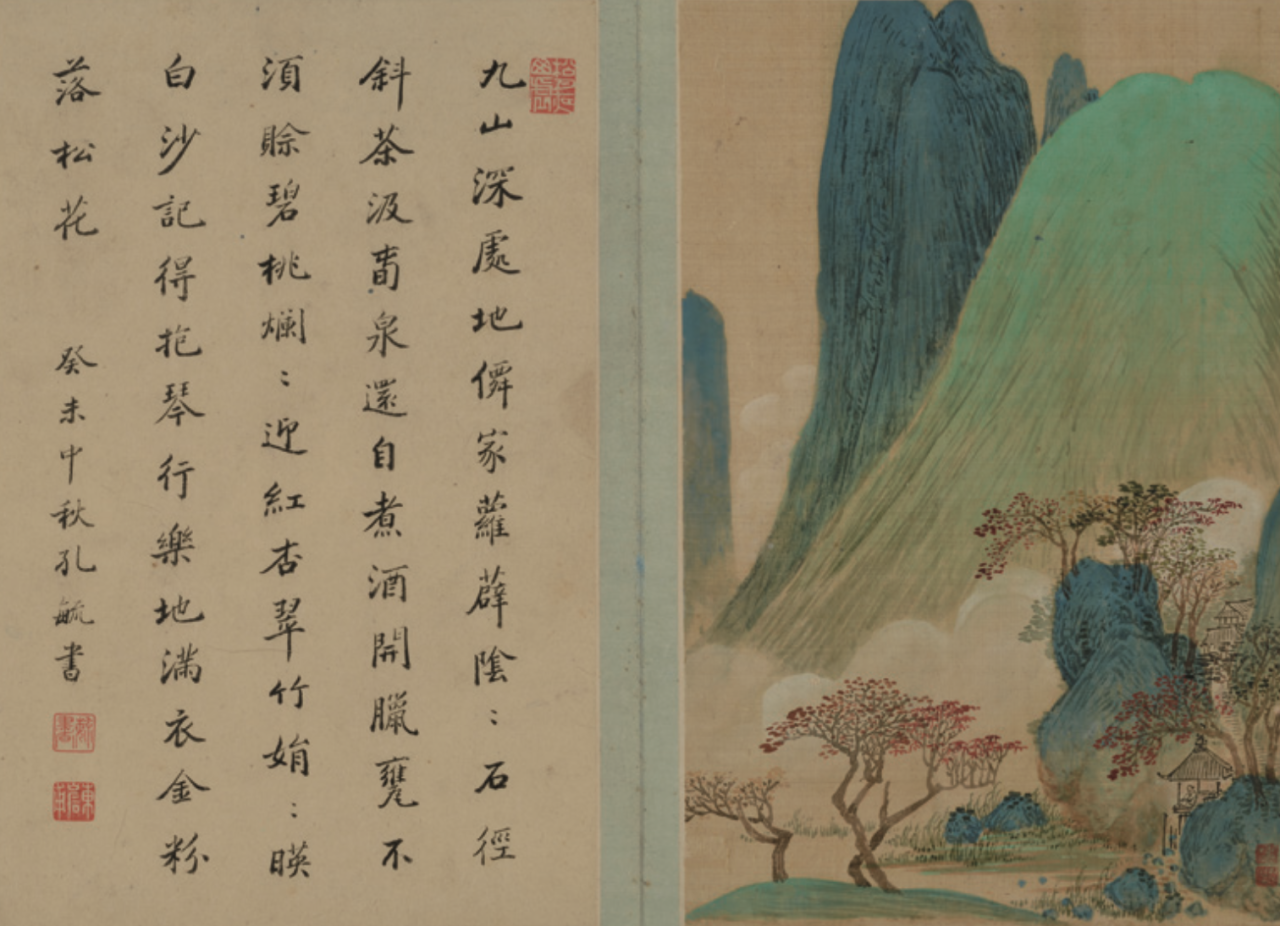 九山深處地僻家蘿薜陰〻石徑
斜茶汲啚泉還自煮酒開臘甕不
須賒碧桃爛〻迎紅杏翠竹娟〻暎
白沙記得抱琴行樂地滿衣金粉
落松花
癸未中秋孔毓書